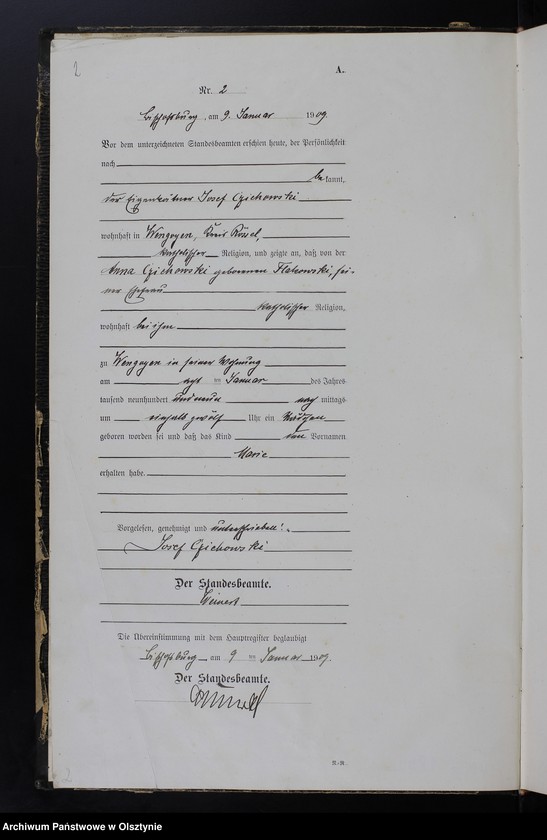 2
A.
Nr. 2
Bischofsburg, am 9. Januar 1909.
Vor dem unterzeichneten Standesbeamten erschien heute, der Persönlichkeit
nach
bekannt,
der Eigenkätner Josef Czichowski
wohnhaft in Wengoyen, Kreis Rössel,
katholischer Religion, und zeigte an, daß von der
Anna Czichowski geborenen, sei-
ner Ehefrau
katholischer Religion,
wohnhaft bei ihm
zu Wengoyen in seiner Wohnung
am acht ten Januar des Jahres
tausend neunhundert und neun nach mittags
um einhalb zwölf Uhr ein Mädchen
geboren worden sei und daß das Kind den Vornamen
Marie
erhalten habe.
Vorgelesen, genehmigt und unterschrieben:
Josef Czichowski
Der Standesbeamte.
Weinert
Die Übereinstimmung mit dem Hauptregister beglaubigt
Bischofsburg am 9 ten Januar 1909.
Der Standesbeamte.
R.-R.
2
Archiwum Państwowe w Olsztynie